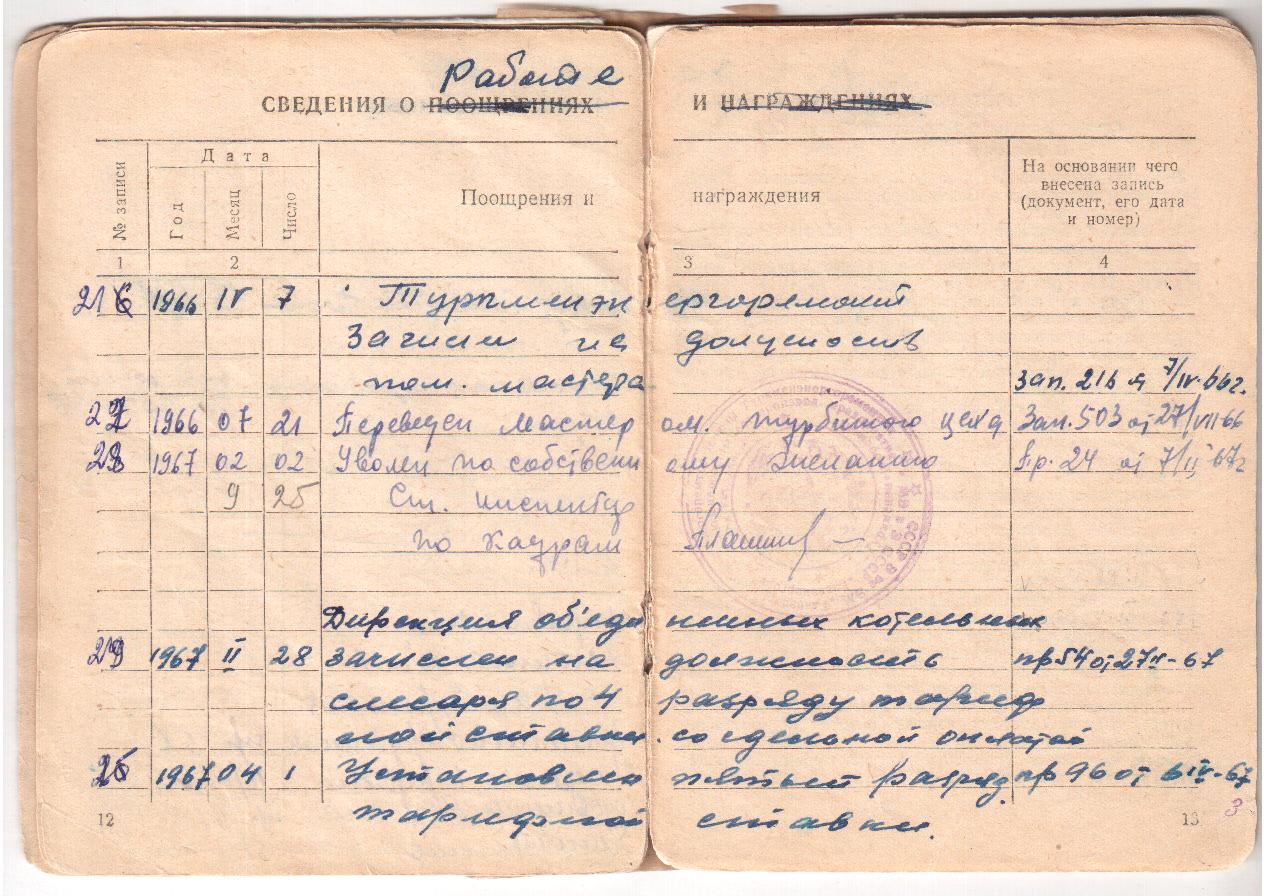 Работе
СВЕДЕНИЯ О ПООЩРЕНИЯХ И НАГРАЖДЕНИЯХ
№ записи
Дата
Год
Месяц
Число
Поощрения и награждения
На основании чего
внесена запись
(документ, его дата
и номер)
1 2 3 4
1966 IV 7 Туркменэнергоремонт
Зачислен на должность
пом. мастера Зап. 216 от 7/IV-66г.
1966 07 21 Переведен мастером. турбинного цеха Зап. 503 от 27/VII 66
1967 02 02 Уволен по собственному желанию Пр. 24 от 7/II 67г
9 25 Ст. инспектор
по кадрам
Дирекция объединенных котельных
1967 II 28 зачислен на должность пр 54 от 27 II-67
слесаря по 4 разряду тариф
ной ставки. со сдельной оплатой
1967 04 1 Установлен пятый разряд пр 96 от 6 IV-67
тарифной ставки.
12 13 3